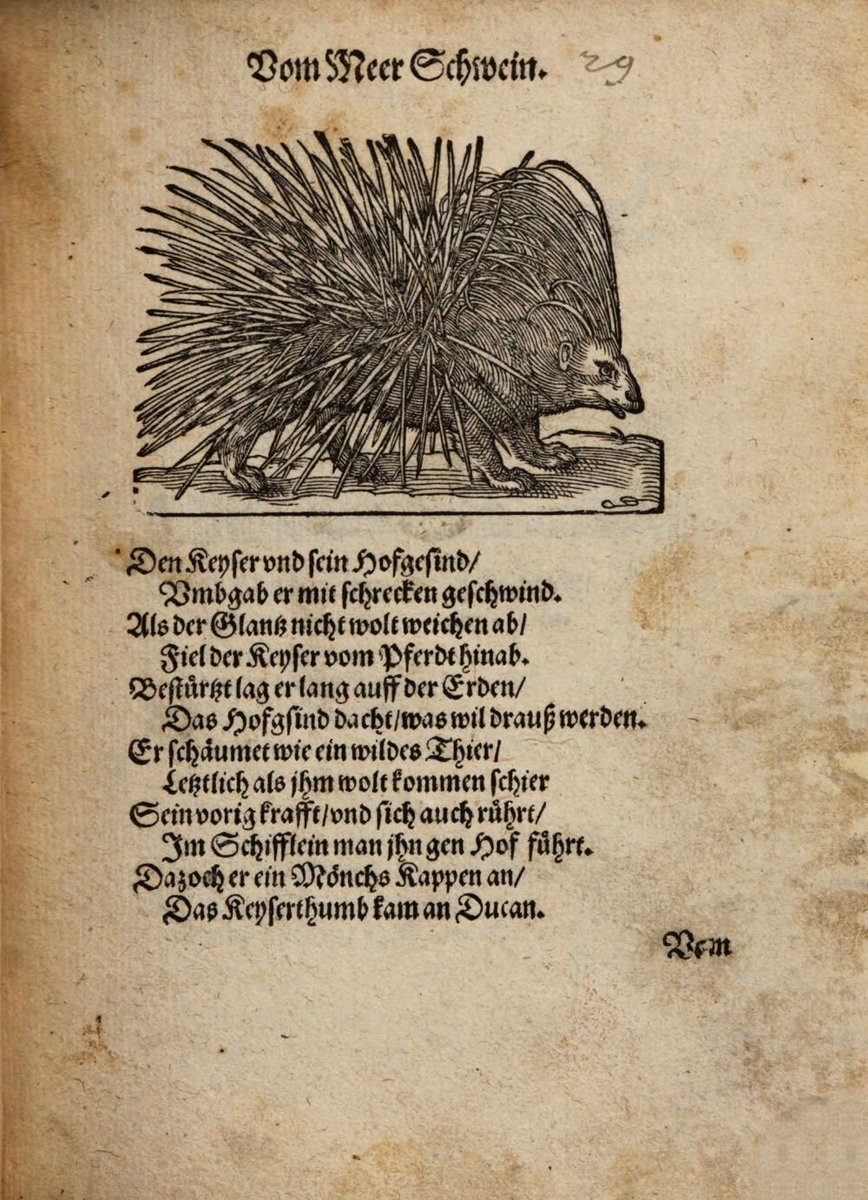 Vom Meer Schwein. 29
Den Keyser vnd sein Hofgesind/
Vmbgab er mit schrecken geschwind.
Als der Glantz nicht wolt weichen ab/
Fiel der Keyser vom Pferdt hinab.
Bestürtzt lag er lang auff der Erden/
Das Hofgsind dacht/was wil drauß werden.
Er schäumet wie ein wildes Thier/
Letztlich als jhm wolt kommen schier
Sein vorig krafft/vnd sich auch rührt/
Im Schifflein man jhn gen Hof führt.
Da zoch er ein Mönchs Kappen an/
Das Keyserthumb kam an Ducan.
Vom